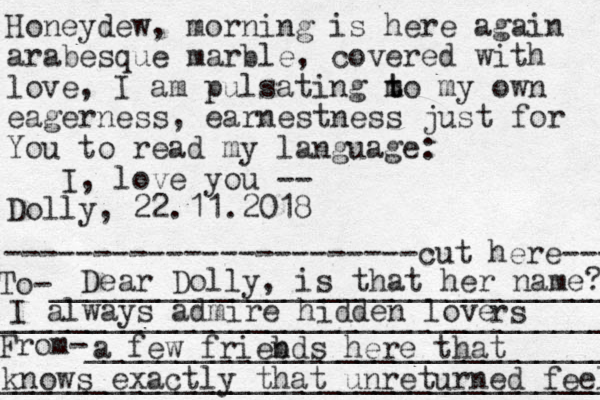 Honeydew, morning is here again
arabesque marble, covered with
love, I am pulsating to my own
eagerness, earnestness just for
You to read my language:
I, love you --
Dolly, 22.11.2018
-----------------------cut here--
To- Dear Dolly, is that her name?
I always admire hidden lovers
From- a few friends here that
knows exactly that unreturned feel